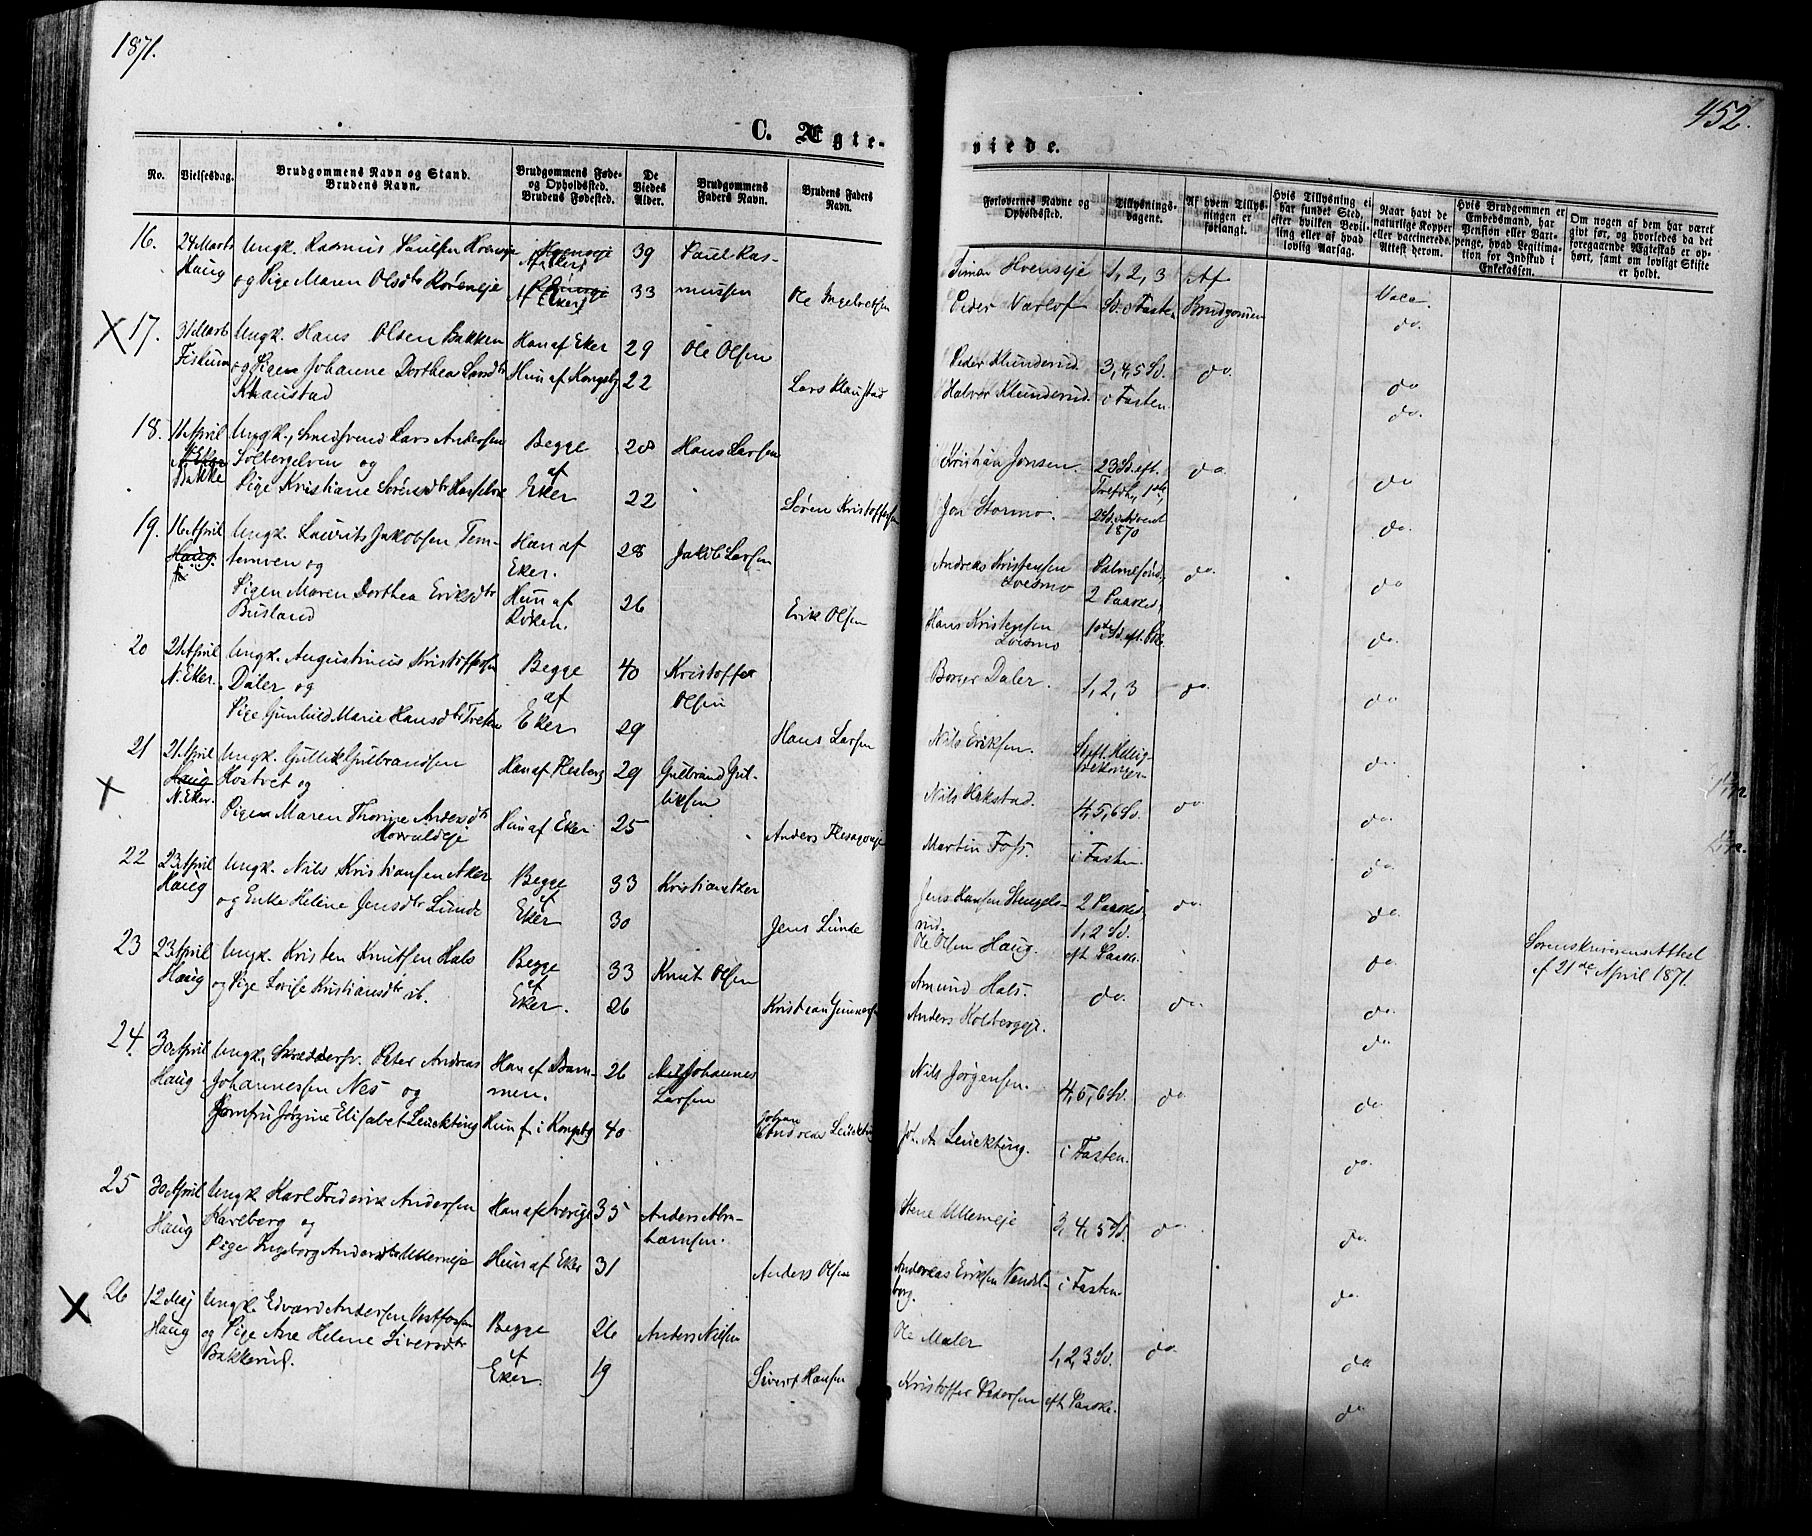 1871.
452.
C. Ægte-
viede.
No.
Vielsesdag.
Brudgommens Navn og Stand.
Brudens Navn.
Brudgommens Føde-
og Opholdssted.
Brudens Fødested.
De
Viedes
Alder.
Brudgommens
Faders Navn.
Brudens Faders
Navn.
Forlovernes Navne og
Opholdssted.
Tillysnings-
dagene.
Af hvem Tillys-
ningen er
forlangt.
Hvis Tillysning ei
har fundet Sted,
efter hvilken Bevil-
ling eller af hvad
lovlig Aarsag.
Naar havt de
naturlige Kopper
eller vaccinerede.
Attest herom.
Hvis Brudgommen er
Embedsmand, har
Pension eller Vart-
penge, hvad Legitima-
tion for Indskud i
Enkekassen.
Om nogen af dem har været
gift før, og hvorledes da det
foregaaende Ægteskab er op-
hørt, samt om lovligt Skifte
er holdt.
16. 24 Marts Ungk. Rasmus Paulsen Hvenseje Af Eker 39 Paul Ras-
Haug og Pige Maren Olsdtr Af Eker 33 mussen Ole Ingebretsen
Simon Hvenseje 1, 2, 3 Af
Peder Varlof Sø. i Fasten Brudgommen Vacc.
do.
X 17. 31 Marts Ungk. Hans Olsen Bakken Han af Eker 29 Ole Olsen
Fiskum og Pigen Johanne Dorthea Larsdtr Hun af Kongsbg 22 Lars Klaustad
Klaustad
Peder Klunderud 3, 4, 5 Sø. do. do
Halvor Klunderud. i Fasten. do.
18. 11 April Ungk., Smedsvend Lars Andersen Begge 28 Hans Larsen
N. Eker Solbergelven og af
Bakke Pige Kristiane Sørensdtr Eker 22 Søren Kristoffersen
Kristian Jensen. 23 Sø. eft. do. do
Jon Stormo. 1870 do.
19. 16 April Ungk. Laurits Jakobsen Tem- Han af 28 Jakob Larsen
Haug temven og Eker.
Pigen Maren Dorthea Eriksdtr Hun af 26 Erik Olsen
Busland Røken.
Andreas Kristensen Palmesønd. do. do
Loesmo 2 Paaskd.
Hans Kristensen do.
Loesmo
20 21 April Ungk. Augustinus Kristoffersen Begge 40 Kristoffer
N. Eker. Daler og af Olsen
Pige Gunhild Marie Hansdtr Eker 29 Hans Larsen
Borger Daler. 1, 2, 3 do. do
Nils Eriksen. do.
21 21 April Ungk. Gullik Gulbrandsen Han af Flesberg 29 Gulbrand Gul-
Haug Kostvet og liksen
X N. Eker. Pigen Maren Thorine Andersdtr Hun af Eker 25 Anders
Horvaldeje
Nils Hakstad. 4, 5, 6 Sø. do. do.
Martin Foss. i Fasten. do.
22 23 April Ungk. Nils Kristiansen Aker Begge 33 Kristian Aker
Haug og Enke Helene Jensdtr Lunde af
Eker 30 Jens Lunde
Jens Hansen Stengels- 2 Paaskd. do. do.
rud. 1, 2 Sø.
Ole Olsen Haug. eft Paaske. do. Sorenskriverens Attest
af 21de April 1871.
23 23 April Ungk. Kristen Knutsen Hals Begge 33 Knut Olsen
Haug og Pige Lovise Kristiansdtr ib. af
Eker. 26 Kristian Gunnersen
Amund Hals. do. do. do.
Anders Holbergeje. do
24. 30 April Ungk., Skreddersv. Peter Andreas Han af Dram- 26 Johannes
Haug Johannessen Nes og men. Larsen
Jomfru Jørgine Elisabet Leuckting Hun f. i Kongsbg 40 Johan
Andreas Leuckting
Nils Jørgensen. 4, 5, 6 Sø. do. do.
Joh. A. Leuckting. i Fasten. do.
25 30 April Ungk Karl Frederik Andersen Han af Sverige 35 Anders Abra-
Haug Karlberg og hamsen.
Pige Ingeborg Andersdtr Ullerneje Hun af Eker 31 Anders Olsen
Stene Ullerneje 3, 4, 5 Sø. do. do.
Andreas Eriksen Vendel- i Fasten. do.
borg.
X 26 12 Maj Ungk. Edvard Andersen Vestfossen Begge 26 Anders Nilsen
Haug og Pige Ane Helene Siversdtr af
Bakkerud. Eker. 19 Sivert Hansen
Ole Maler 1, 2, 3 Sø. do. do
Kristoffer Pedersen eft Paaske. do.